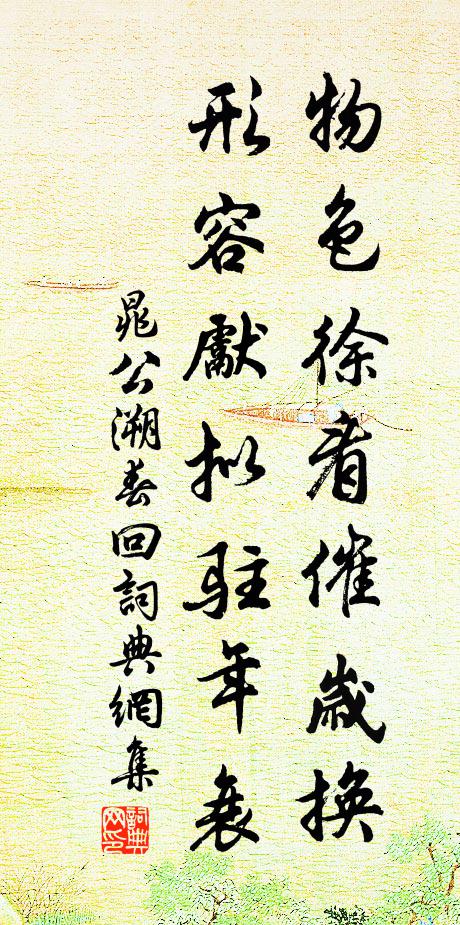 物色徐看催歲換
形容獻拟駐年衰
晁公溯春回詞典網集
詞典网印